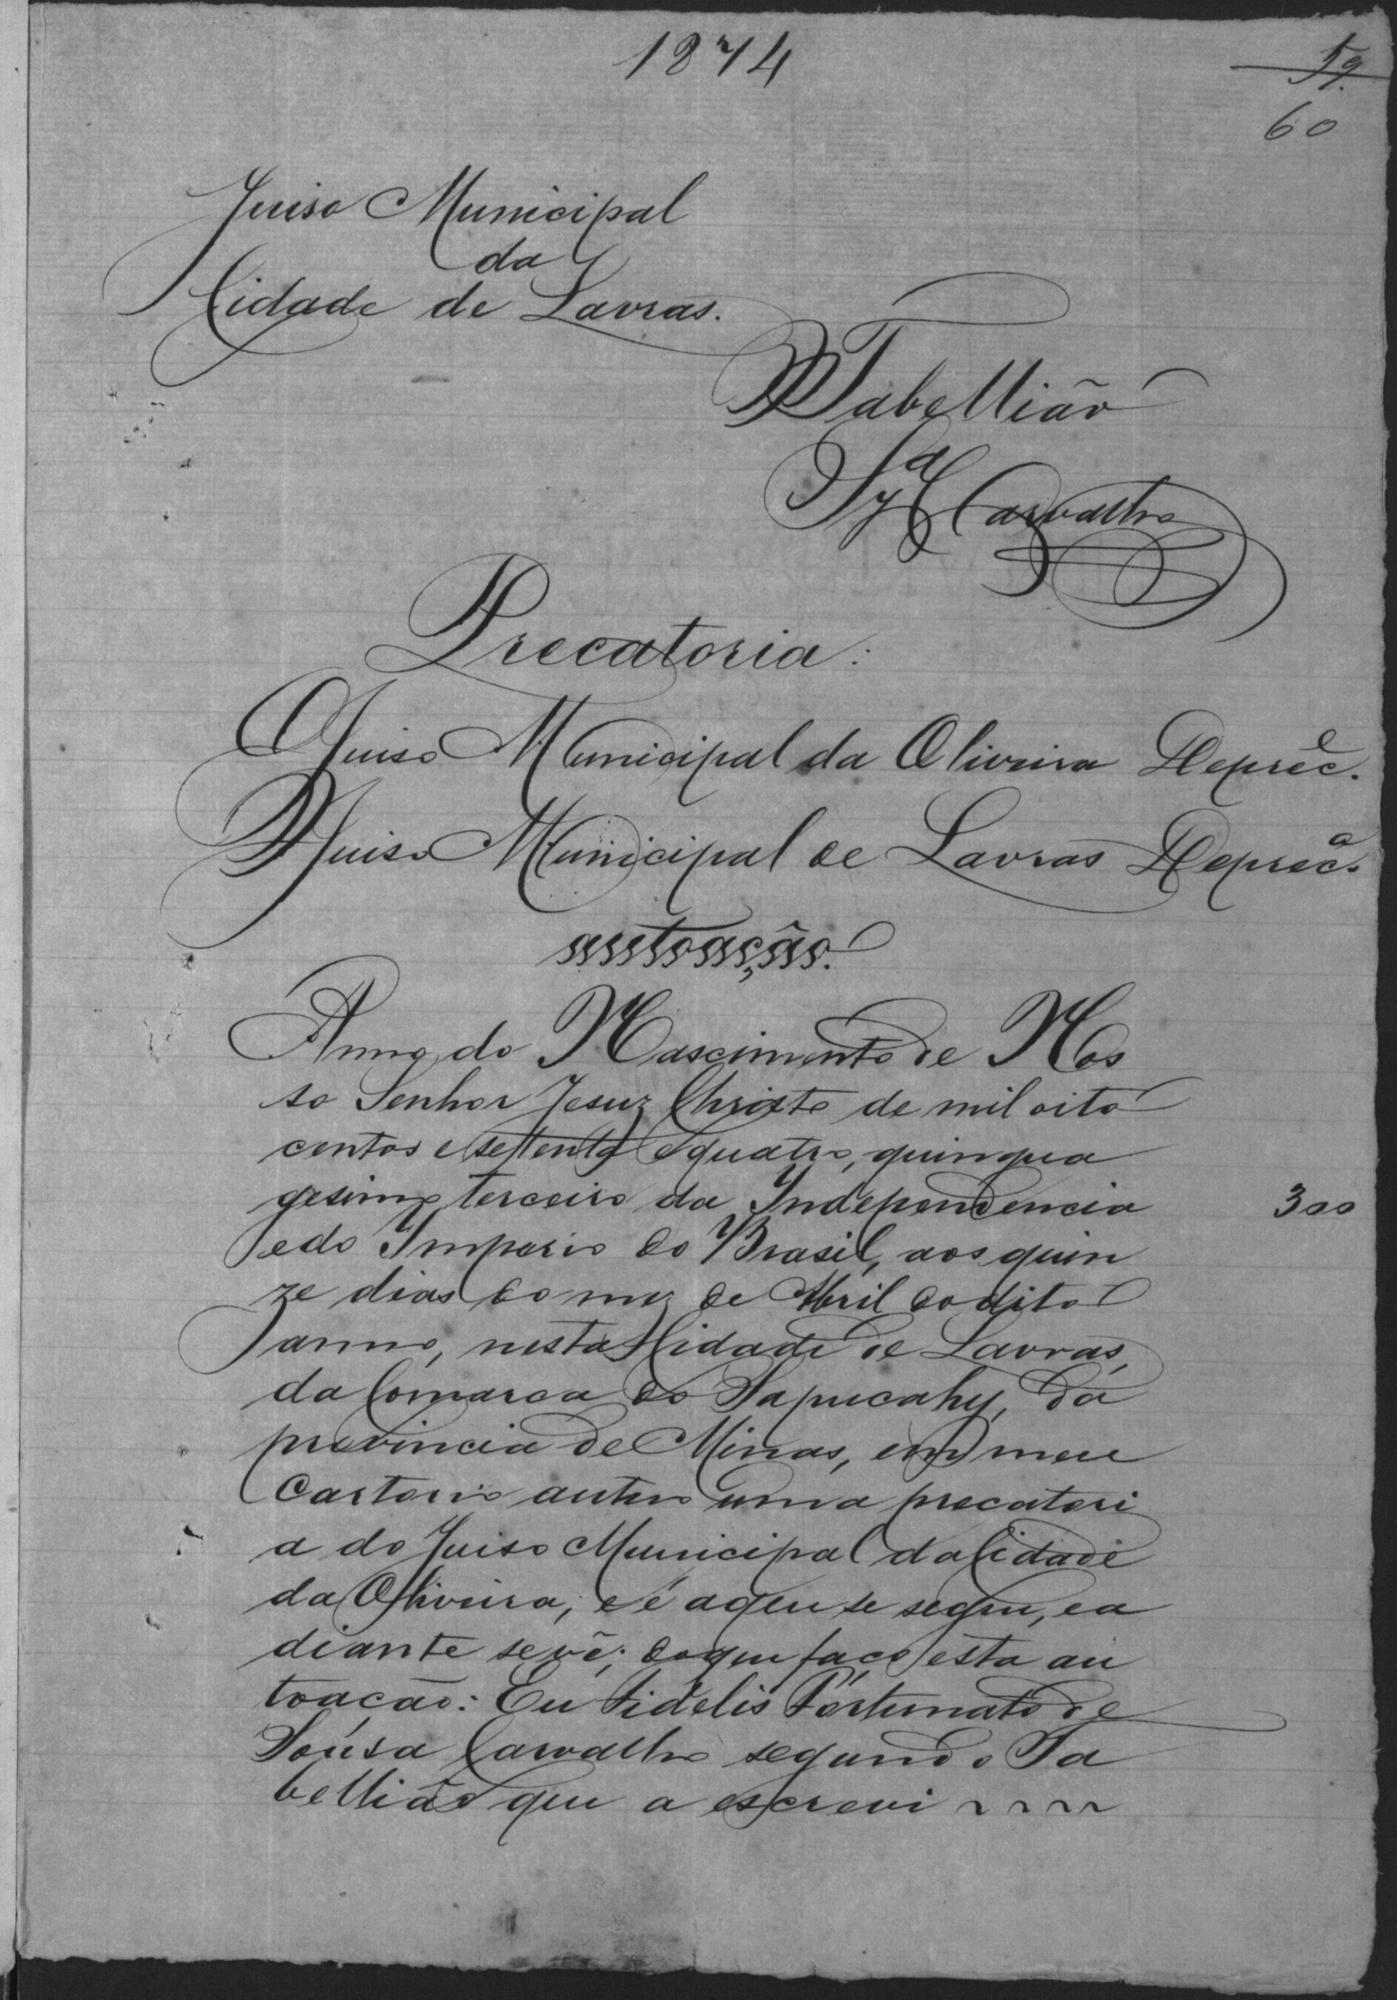 1874
59.
60
Juiso Municipal
da
Cidade de Lavras.
Tabellião
Sza Carvalho
Precatoria:
O Juiso Municipal da Oliveira Deprec.e
O Juiso Municipal de Lavras Deprec.o
autoação.
Anno do Nascimento de Nos
so Senhor Jesuz Christo de mil oito
centos e settenta e quatro, quinqua
gesimo terceiro da Independencia
300
e do Imperio do Brasil, aos quin
ze dias do mez de Abril do dito
anno, nesta Cidade de Lavras,
da Comarca do Sapucahy, da
provincia de Minas, em meu
Cartorio autuo uma precatori
a do Juiso Municipal da Cidade
da Oliveira, e é aque se segue, ea
diante se vê; do que faço esta au
toacão: Eu Fidelis Fortunato de
Sousa Carvalho segundo Ta
bellião que a escrevi